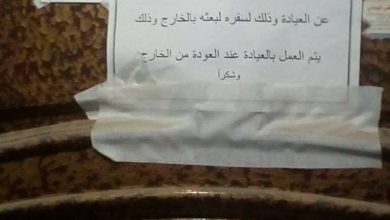 عن العيادة وذلك لسفره لبعثه بالخارج وذلك
يتم العمل بالعيادة عند العودة من الخارج
وشكرا